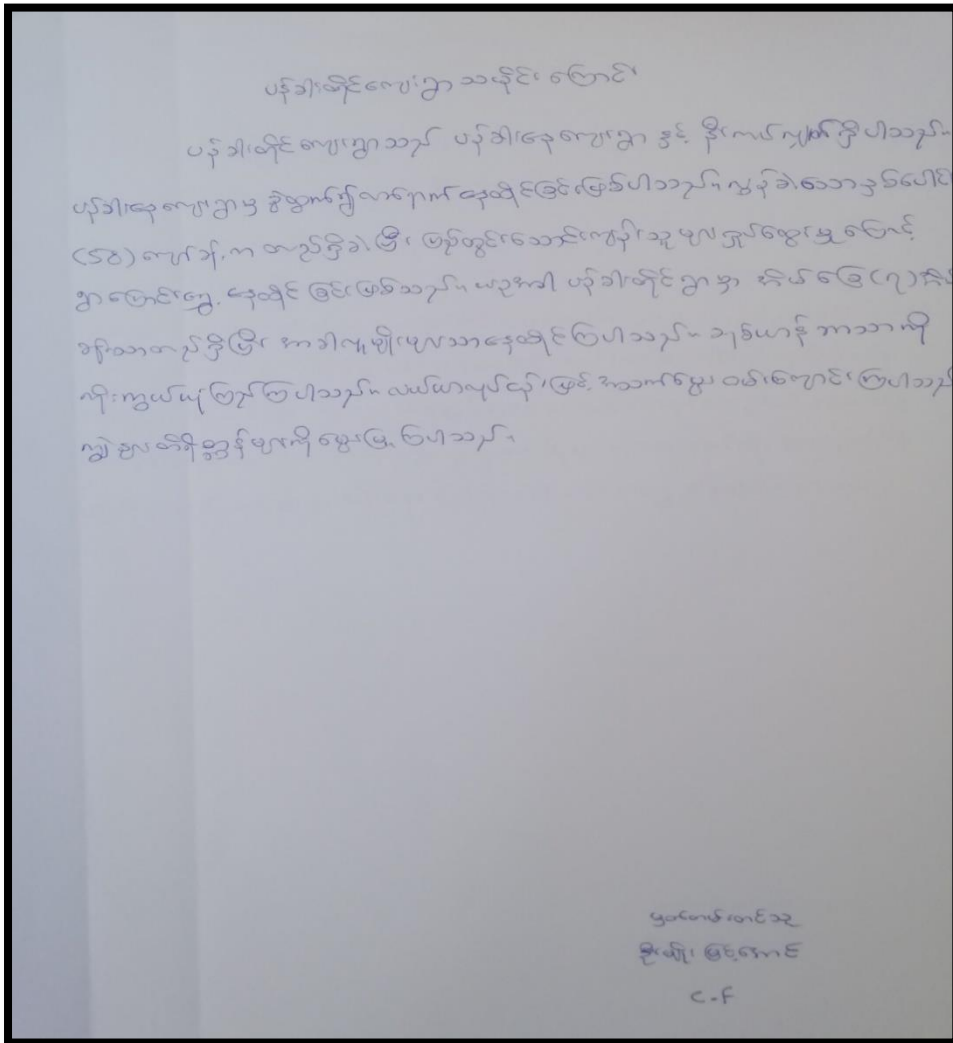 ပန်ခါးထိုင်ကျေးရွာ သမိုင်း ကြောင်း
ပန်ခါးထိုင်ကျေးရွာသည် ပန်ခါးနေကျေးရွာ နှင့် နီးကပ်လျှက်ရှိပါသည်။
ပန်ခါးနေကျေးရွာမှ ခွဲထွက်၍လာရောက် နေထိုင်ခြင်းဖြစ်ပါသည်။ လွန်ခဲ့သောနှစ်ပေါင်း
(50) ကျော်ခန့်က တည်ရှိခဲ့ပြီး ပြည်တွင်းသောင်းကျန်းသူများ ရှုပ်ထွေးမှု ကြောင့်
ရွာပြောင်းရွှေ့ နေထိုင်ခြင်းဖြစ်သည်။ ယခုအခါ ပန်ခါးထိုင်ရွာမှာ အိမ်ခြေ (၇) အိမ်
ခန့်သာတည်ရှိပြီး အာခါလူမျိုးများသာနေထိုင်ကြပါသည်။ ခရစ်ယာန် ဘာသာကို
ကိုးကွယ်ယုံကြည်ကြပါသည်။ လယ်ယာလုပ်ငန်းဖြင့် အသက်မွေး ဝမ်းကျောင်းကြပါသည်
ကျွဲ နွား တိရိစ္ဆာန်များကို မွေးမြူကြပါသည်။
မှတ်တမ်းတင်သူ
ဦးမျိုးမြင့်အောင်
C.F